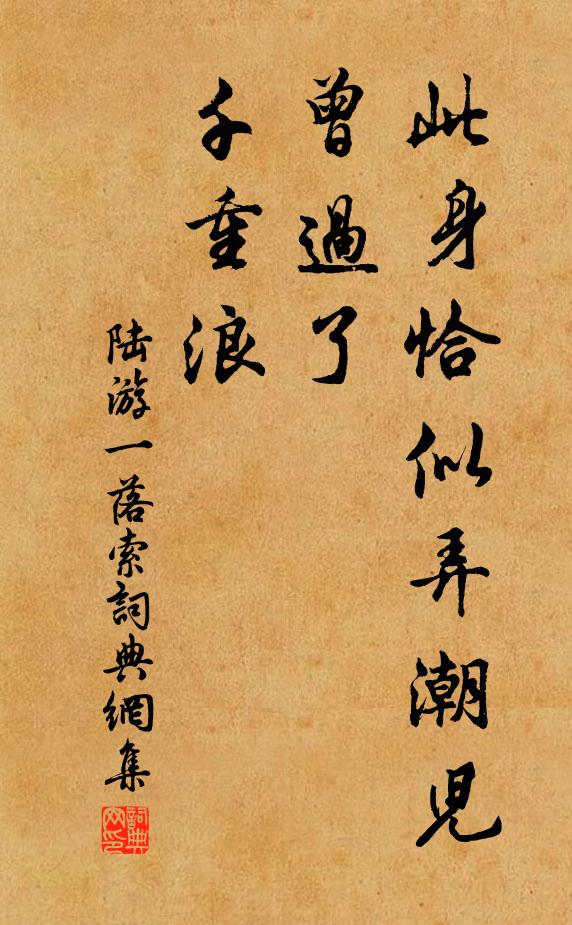 此身恰似弄潮兒
曾過了
千重浪
陆游一落索詞典網集
詞典网印